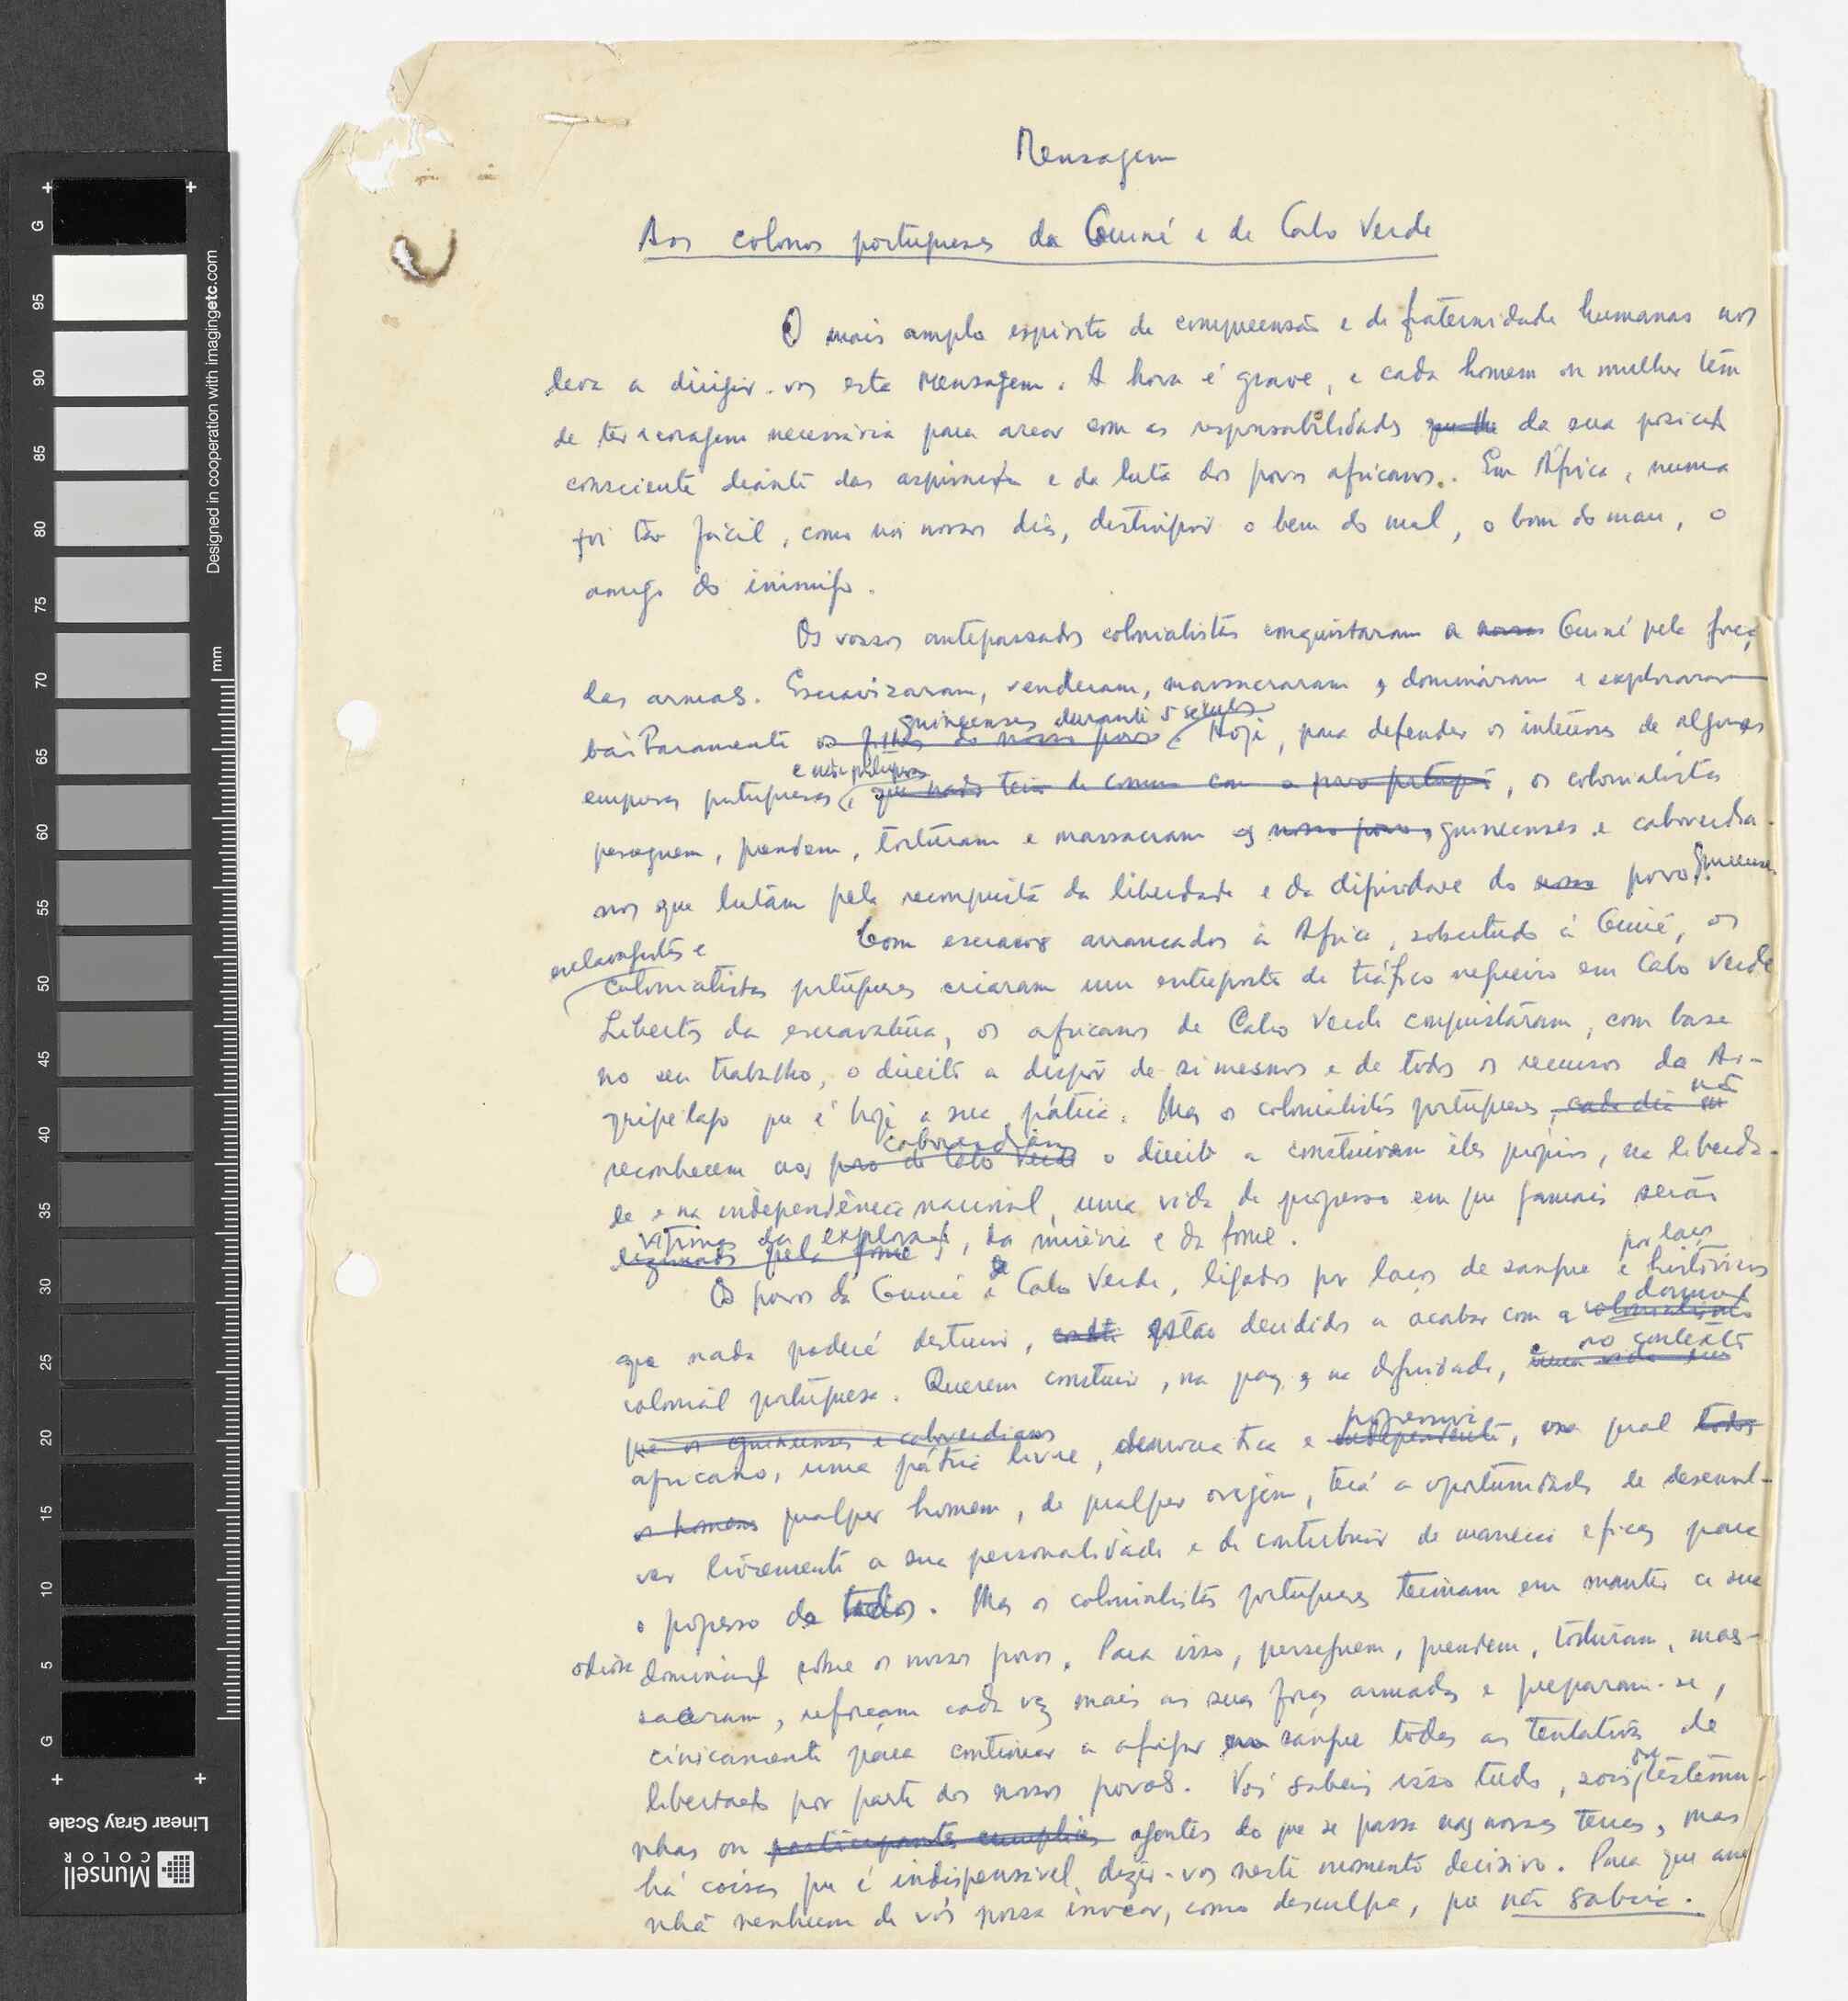 Mensagem
Aos colonos portugueses da Guiné e de Cabo Verde
O mais amplo espírito de compreensão e de fraternidade humanas nos
leva a dirigir-vos esta Mensagem. A hora é grave, e cada homem ou mulher têm
de ter a coragem necessária para arcar com as responsabilidades da sua posição
consciente diante das aspirações e da luta dos povos africanos. Em África, nunca
foi tão fácil, como nos nossos dias, distinguir o bem do mal, o bom do mau, o
amigo do inimigo.
Os vossos antepassados colonialistas conquistaram a nossa Guiné pela força
das armas. Escravizaram, venderam, massacraram, dominaram e exploraram
guineenses durante 5 séculos
bàrbaramente os filhos do nosso povo. Hoje, para defender os interesses de algumas
e não portuguesas
empresas portuguesas, que nada tem de comum com o povo português, os colonialistas
perseguem, prendem, torturam e massacram os nosso povo, guineenses e caboverdia-
nos que lutam pela reconquista da liberdade e da dignidade do nosso povo guineense.
Com escravos arrancados à África, sobretudo à Guiné, os
esclavagistas e
colonialistas portugueses criaram um entreposto de tráfico negreiro em Cabo Verde
Libertos da escravatura, os africanos de Cabo Verde conquistaram, com base
no seu trabalho, o direito a dispôr de si mesmos e de todos os recursos do Ar-
quipélago que é hoje a sua pátria. Mas os colonialistas portugueses, cada dia não
caboverdianos
reconhecem aos povo de Cabo Verde o direito a construirem êles próprios, na liberda-
de e na independência nacional, uma vida de progresso em que jamais serão
vítimas da exploração, da miséria e da fome.
dizimados pela fome
por laços
Os povos da Guiné e Cabo Verde, ligados por laços de sangue e históricos
domínio
que nada poderá destruir, estão decididos a acabar com o colonialismo
no contexto
colonial português. Querem construir, na paz e na dignidade, uma vida
que os guineenses e caboverdianos
progressiva
africano, uma pátria livre, democrática e independente, na qual todos
os homens qualquer homem, de qualquer origem, terá a oportunidade de desenvol-
ver livremente a sua personalidade e de contribuir de maneira eficaz para
o progresso de todos. Mas os colonialistas portugueses teimam em manter a sua
odiosa dominação sôbre os nossos povos. Para isso, perseguem, prendem, torturam, mas-
sacram, reforçam cada vez mais as suas forças armadas e preparam-se,
cìnicamente para continuar a afogar em sangue todas as tentativas de
libertação por parte dos nossos povos. Vós sabeis isso tudo, sois testemu-
nhas ou participantes cumplices agentes do que se passa nas nossas terras, mas
há coisas que é indispensável dizer-vos neste momento decisivo. Para que ama-
nhã nenhum de vós possa invocar, como desculpa, que não sabia.
Designed in cooperation with imagingetc.com
mm
G 95 90 85 80 75 70 65 60 55 50 45 40 35 30 25 20 15 10 5 G
Linear Gray Scale
Munsell
COLOR